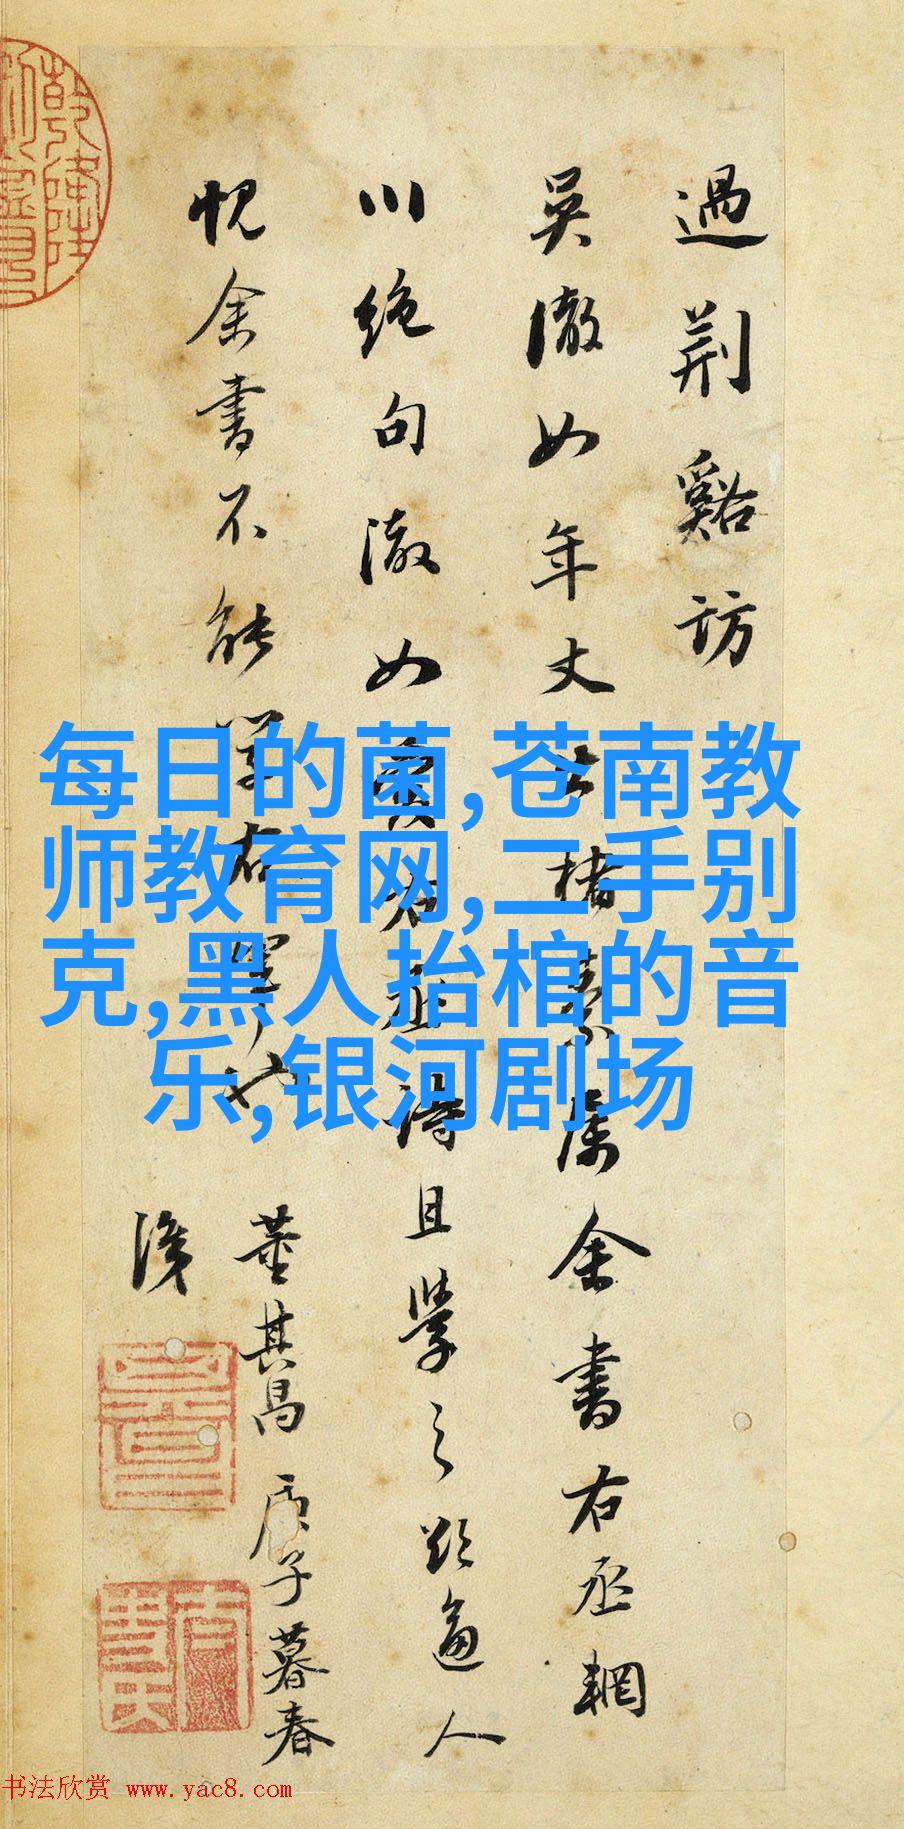 過荆谿訪
吳澈如年丈
余書右丞輞
川絶句澈如
得且學之欵逼人
愧余書不能學右
董其昌庚子暮春
識
每日的菌,苍南教
师教育网,二手别
克,黑人抬棺的音
乐,银河剧场
书法欣赏 www.yac8.com